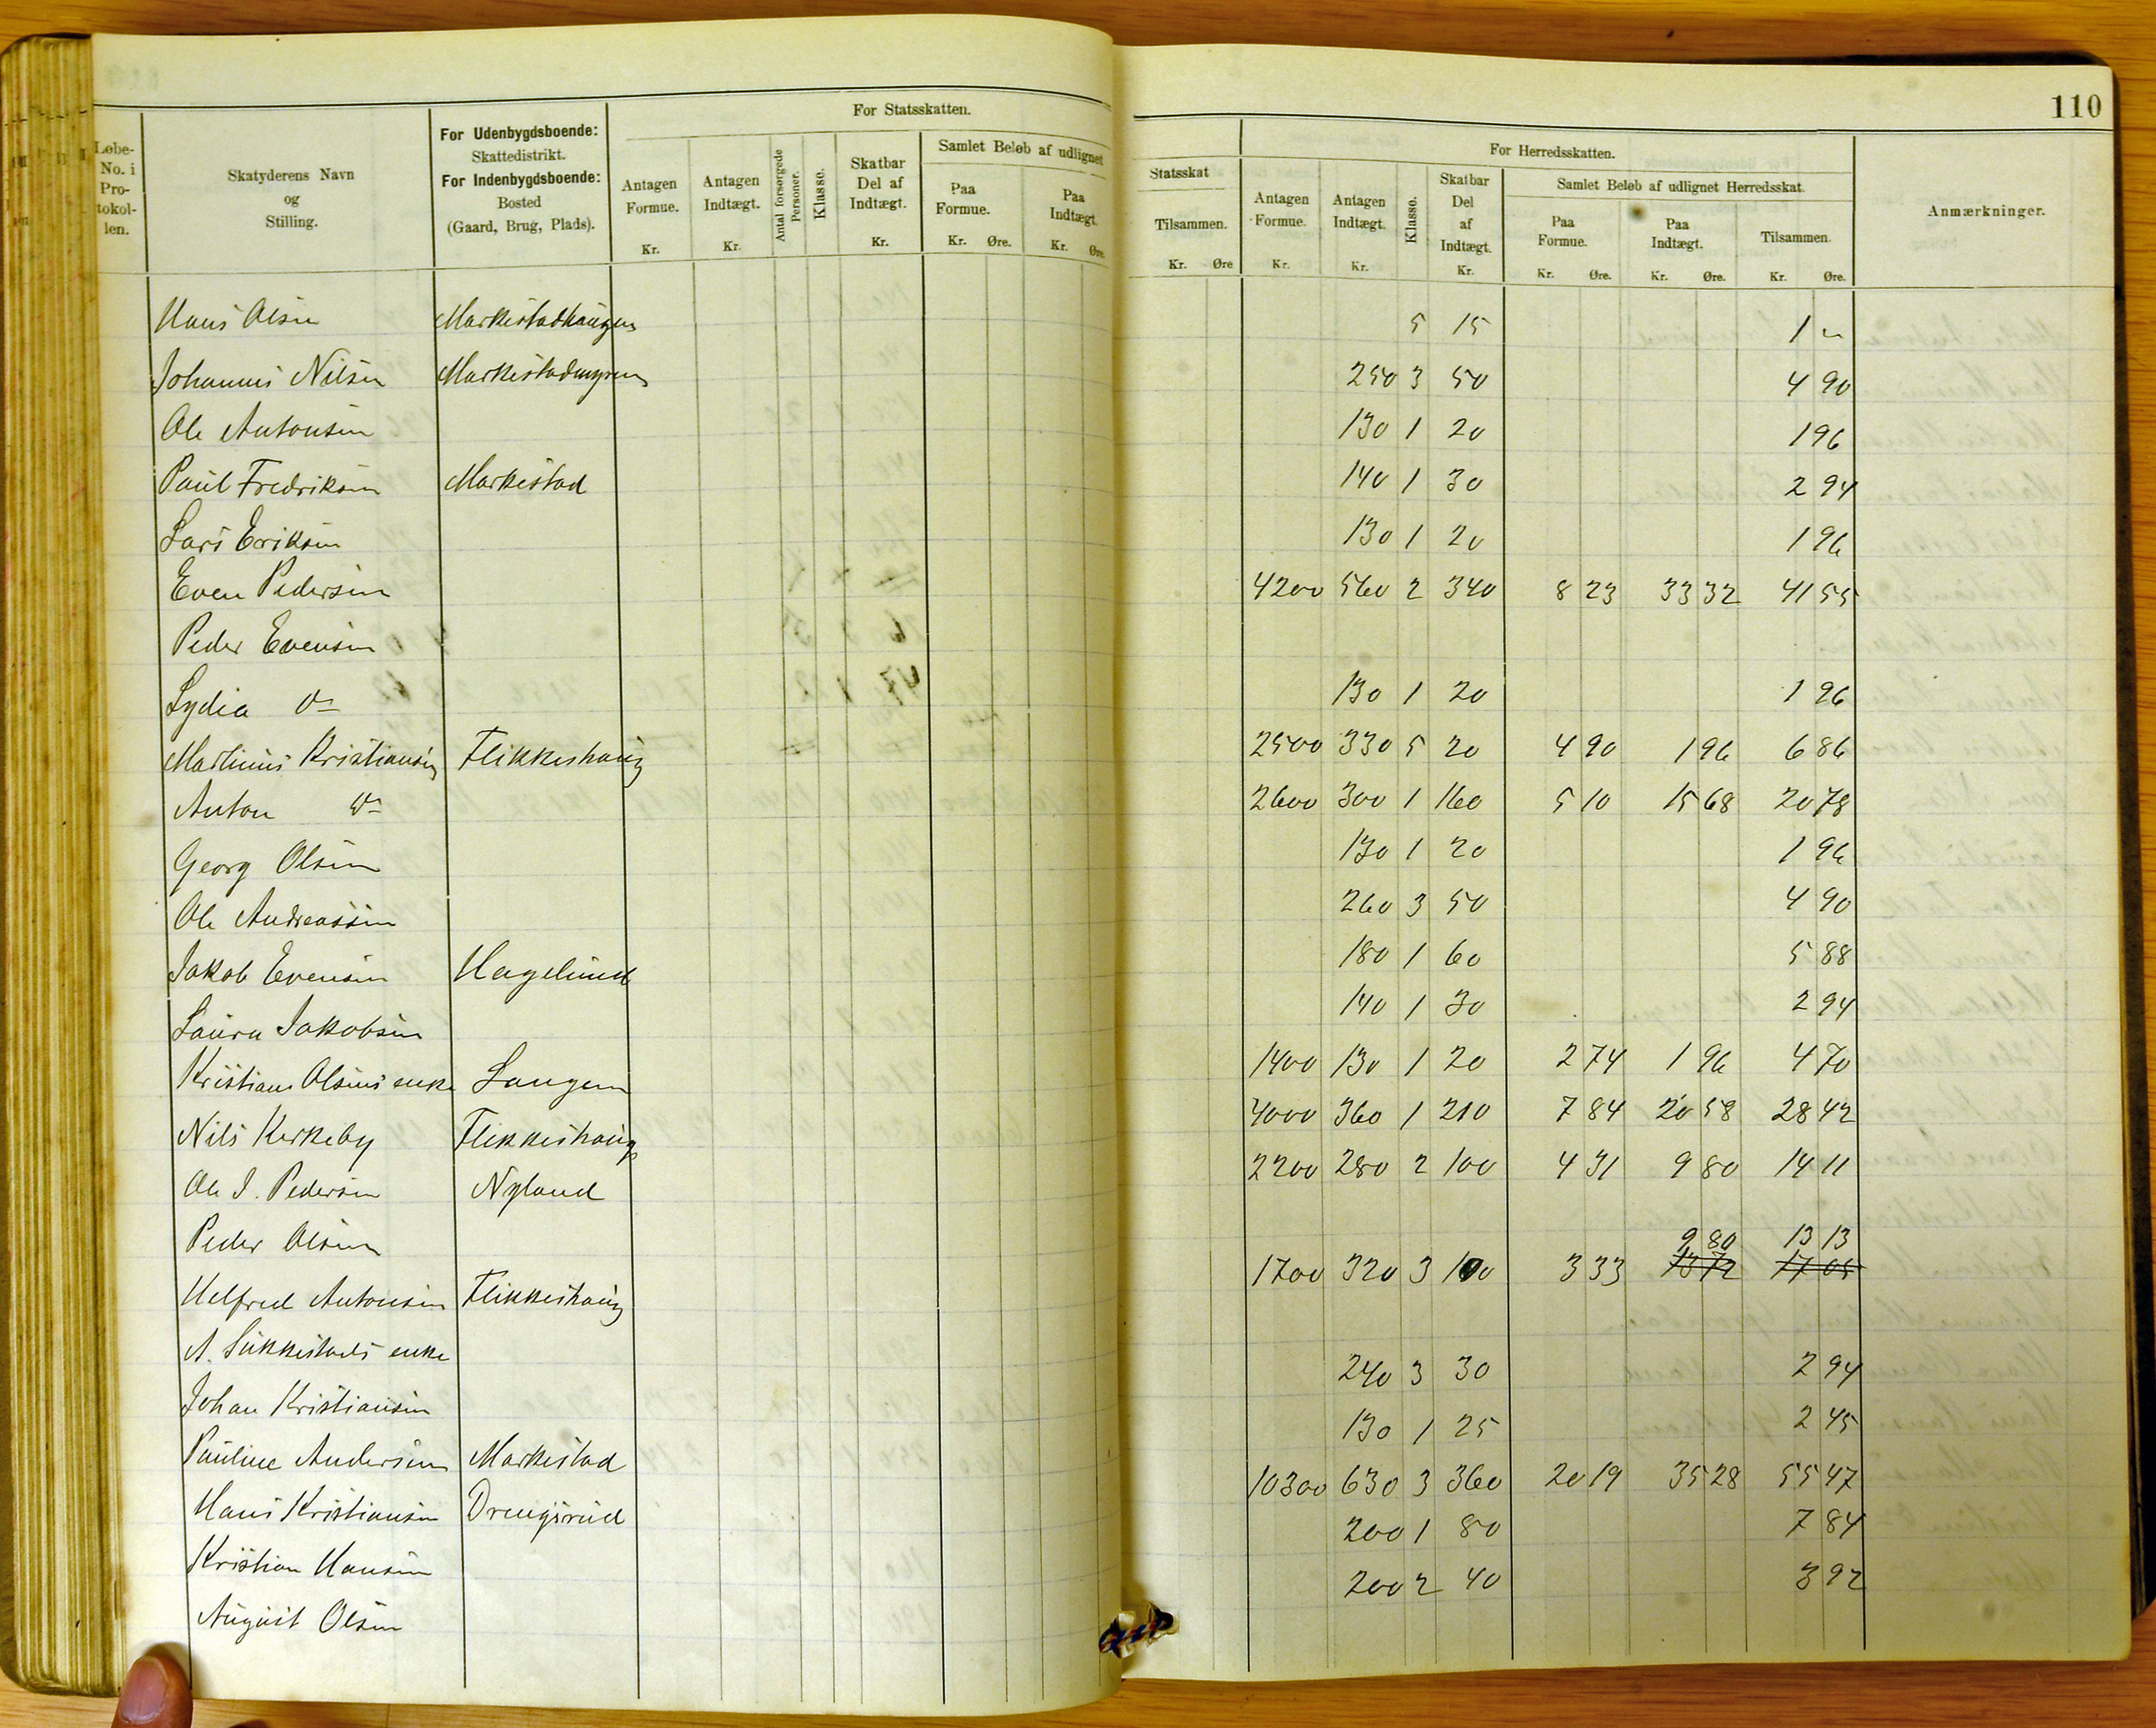 110
For Statsskatten.
For Herredsskatten.
Løbe-No. i Pro-tokol-len.
Skatyderens Navn og Stilling.
For Udenbygdsboende: Skattedistrikt. For Indenbygdsboende: Bosted (Gaard, Brug, Plads).
Antagen Formue. Kr.
Antagen Indtægt. Kr.
Antal forsørgede Personer.
Klasse.
Skatbar Del af Indtægt. Kr.
Samlet Beløb af udlignet
Paa Formue. Kr. Øre.
Paa Indtægt. Kr. Øre.
Statsskat
Tilsammen. Kr. Øre
Antagen Formue. Kr.
Antagen Indtægt. Kr.
Klasse.
Skatbar Del af Indtægt. Kr.
Samlet Beløb af udlignet Herredsskat.
Paa Formue. Kr. Øre.
Paa Indtægt. Kr. Øre.
Tilsammen. Kr. Øre.
Anmærkninger.
Hans Olsen Markestadhaugen 5 15 1 "
Johannes Nilsen Markestadmyren 250 3 50 4 90
Ole Antonsen 130 1 20 1 96
Paul Fredriksen Markestad 140 1 30 2 94
Lars Eriksen 130 1 20 1 96
Even Pedersen 4200 560 2 340 8 23 33 32 41 55
Peder Evensen
Lydia do 130 1 20 1 96
Martinus Kristiansen Flikkeshaug 2500 330 5 20 4 90 1 96 6 86
Anton do 2600 300 1 160 5 10 15 68 20 78
Georg Olsen 130 1 20 1 96
Ole Andreassen 260 3 50 4 90
Jakob Evensen Hagelund 180 1 60 5 88
Laura Jakobsen 140 1 30 2 94
Kristian Olsens enke Langen 1400 130 1 20 2 74 1 96 4 70
Nils Kerkeby Flikkeshaug 4000 360 1 210 7 84 20 58 28 42
Ole J. Pedersen Nyland 2200 280 2 100 4 31 9 80 14 11
Peder Olsen
9 80 13 13
Helfred Antonsen Flikkeshaug 1700 320 3 100 3 33 13 72 17 05
A. Sukkestads enke
Johan Kristiansen 240 3 30 2 94
Pauline Andersen Markestad 130 1 25 2 45
Hans Kristiansen Drengsrud 10300 630 3 360 20 19 35 28 55 47
Kristian Hansen 200 1 80 7 84
August Olsen 200 2 40 3 92